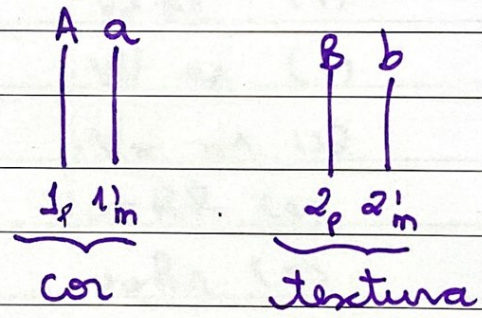 A a B b
1p 1'm 2p 2'm
cor textura